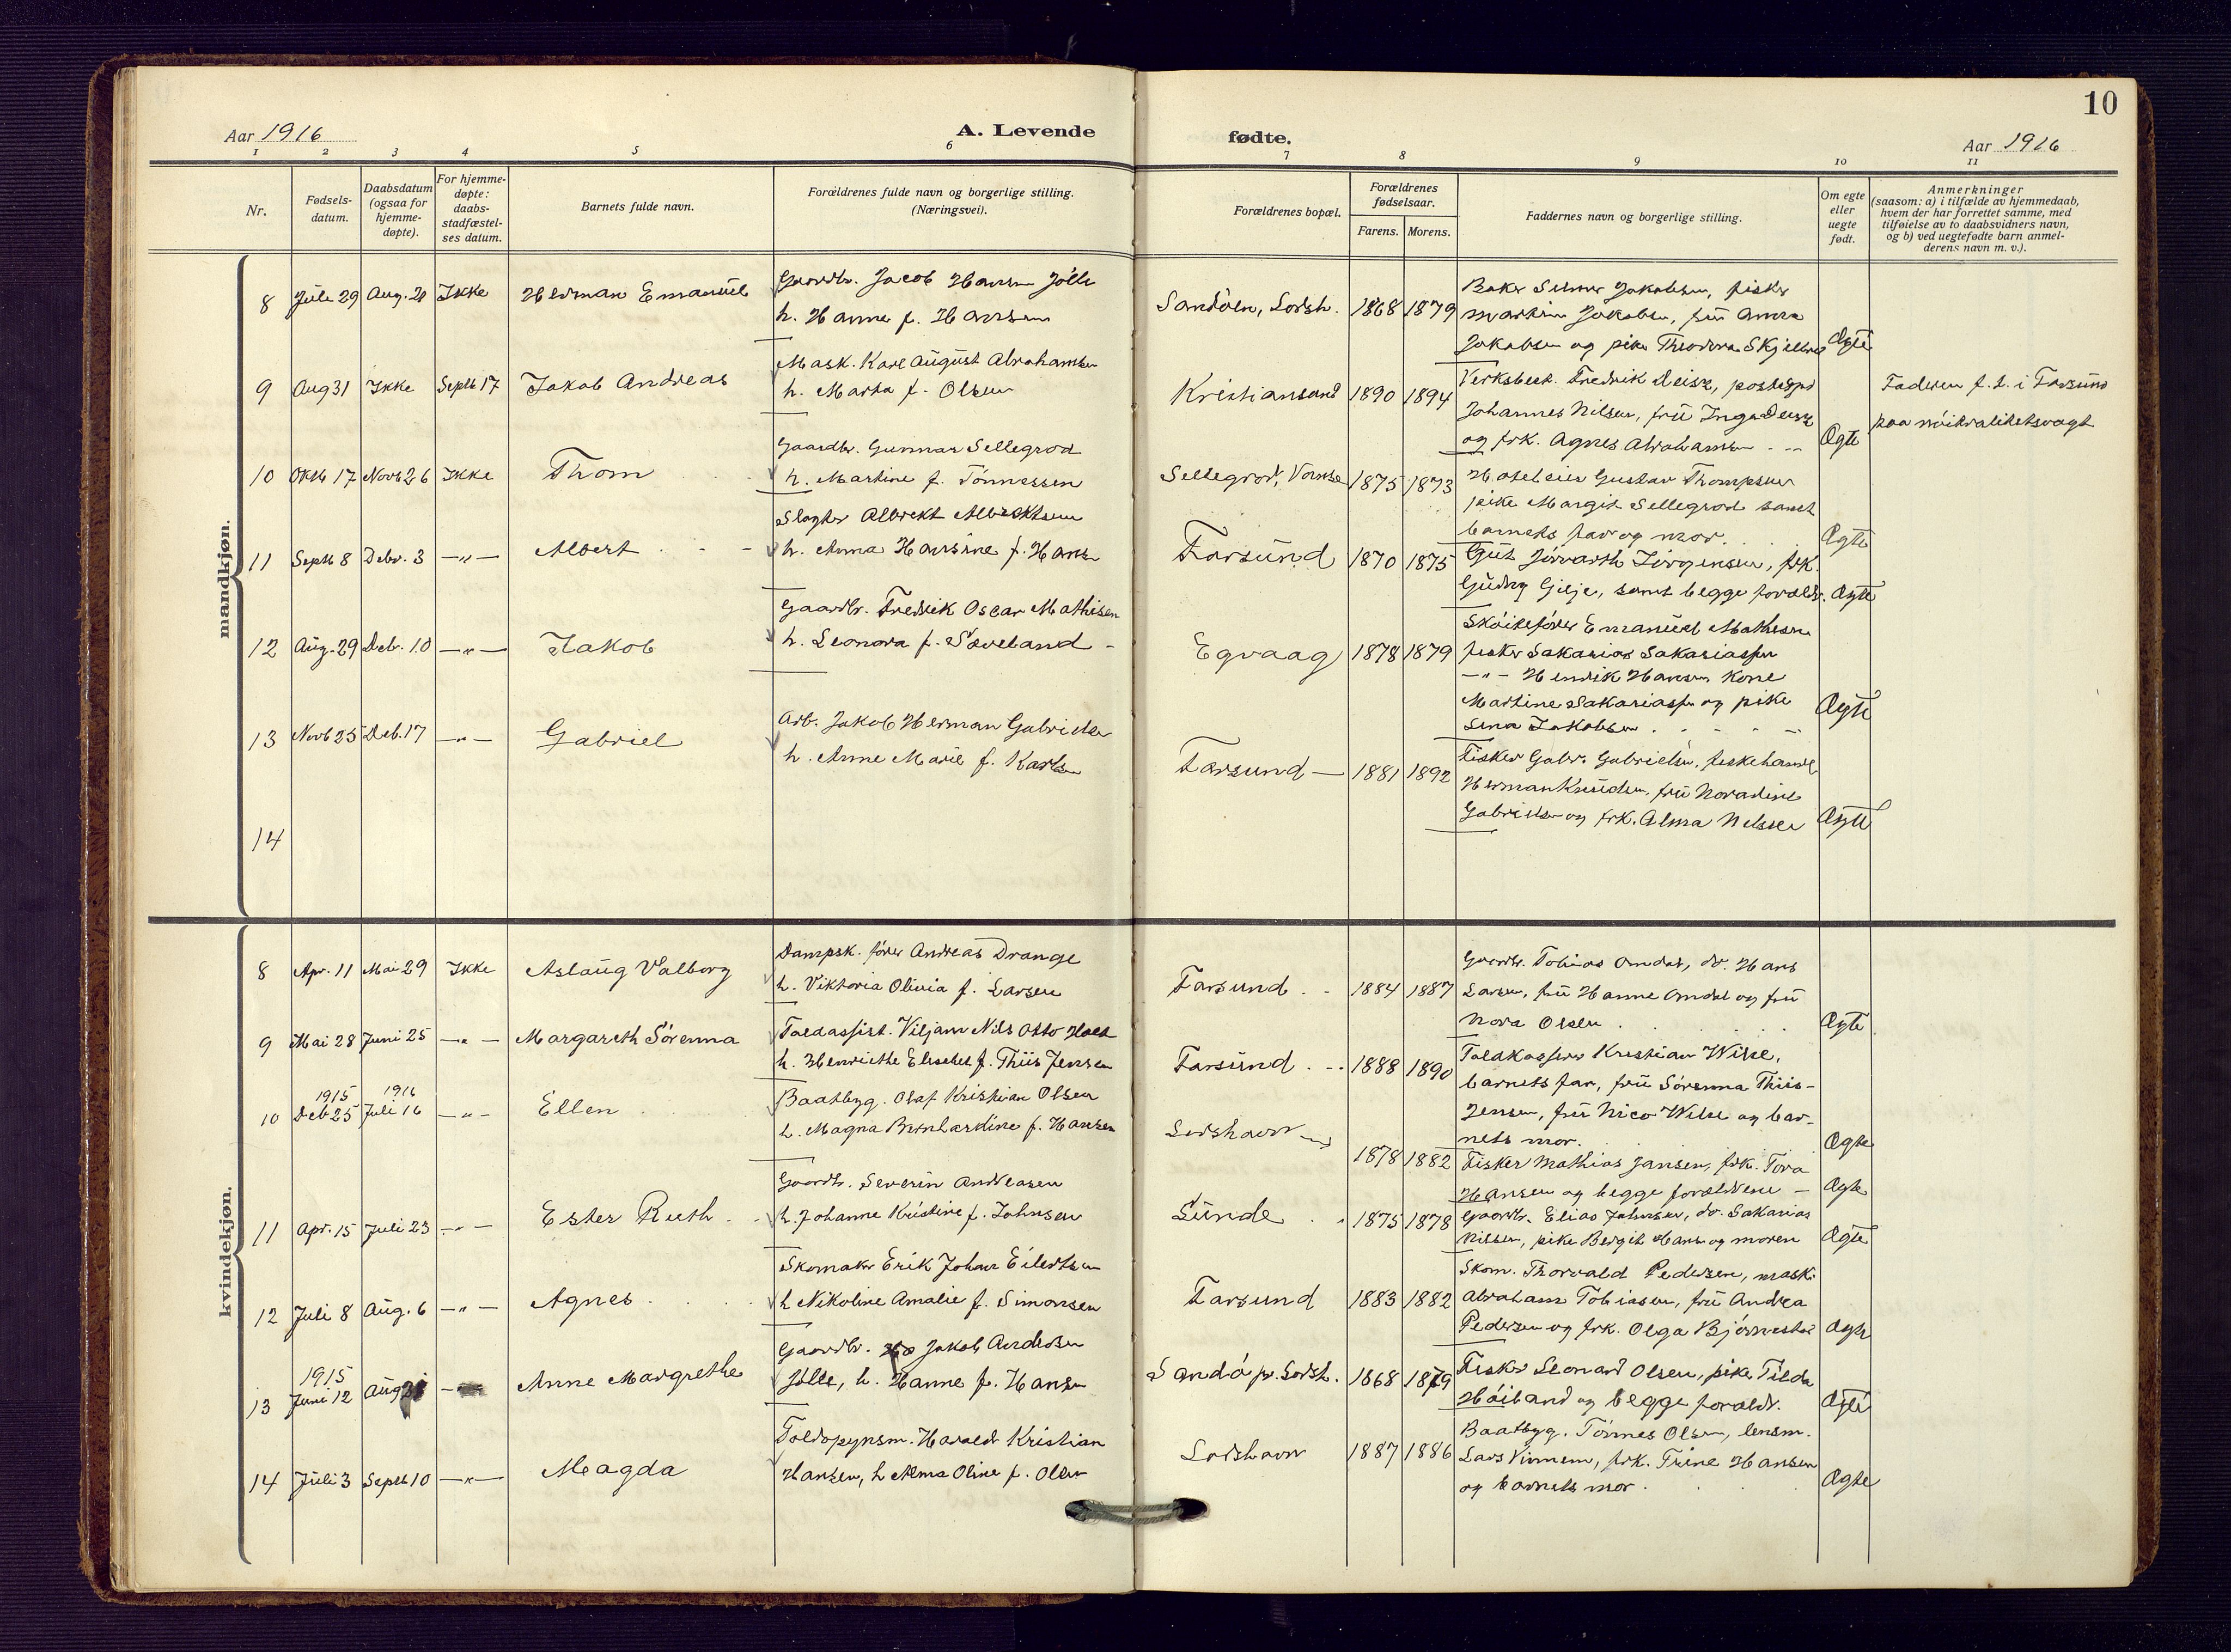 10
Aar 1916
A. Levende fødte.
Aar 1916
1 2 3 4 5 6 7 8 9 10 11
Nr.
Fødsels-datum.
Daabsdatum (ogsaa for hjemme-døpte).
For hjemme-døpte: daabs-stadfæstel-ses datum.
Barnets fulde navn.
Forældrenes fulde navn og borgerlige stilling. (Næringsvei).
Forældrenes bopæl.
Forældrenes fødselsaar.
Farens. Morens.
Faddernes navn og borgerlige stilling.
Om egte eller uegte født.
Anmerkninger (saasom: a) i tilfælde av hjemmedaab, hvem der har forrettet samme, med tilføielse av to daabsvidners navn, og b) ved uegtefødte barn anmel-derens navn m. v.).
mandkjøn.
8 Juli 29 Aug. 20 Ikke Herman Emanuel
Gaardbr. Jacob Hansen Jölle
h. Hanne f. Hansen
Sandöen, Losh. 1868 1879
Jakobsen, fisker
Jakobsen, frü Anna
Jakobsen og pike Theodora
Ægte
9 Aug 31 Ikke Septb 17 Jakob Andreas
Mask. Karl August Abrahamsen
h. Marta f. Olsen
Kristiansand 1890 1894
Verksbest. Fredrik
Johannes Nilsen, frü Inga
og frk. Agnes Abrahamsen
Ægte
Faderen f. t. i Farsund
paa nöitralitetsvagt
10 Oktb 17 Novb 26 Ikke Thom
Gaardbr. Gunnar Sellegrod
h. Martine f. Tönnessen
Sellegrod, Vanse 1875 1873
Hoteleier Gustav Thompsen
pike Margit Sellegrod samt
barnets far og mor.
Ægte
11 Septb 8 Debr. 3 -"- Albert
Slagter Albrekt Albrektsen
h. Anna Hansine f. Hansen
Farsund 1870 1875
Gut Jörgensen, frk.
Gudny Gilje, samt begge foræld.
Ægte
12 Aug. 29 Debr. 10 -"- Jakob
Gaardbr. Fredrik Oscar Mathisen
h. Leonora f. Sæveland
Egvaag 1878 1879
Sköiteförer Emanuel Mathisen
fisker Sakarias Sakariassen
-"- Henrik Hansen Kone
Martine Sakariassen og pike
Lina Jakobsen
Ægte
13 Novb 25 Deb. 17 -"- Gabriel
Arb. Jakob Herman Gabrielsen
h. Anne Marie f. Karlsen
Farsund 1881 1892
Fisker Gabr. Gabrielsen, fiskehandl
Herman Knudsen, frü Noradine
Gabrielsen og frk. Alma Nilssen
Ægte
14
kvindekjøn.
8 Apr. 11 Mai 29 Ikke Aslaug Valborg
Dampsk. förer Andreas Drange
h. Viktoria Olivia f. Larsen
Farsund 1884 1887
Gaardbr. Tobias Omdal, do. Hans
Larsen, frü Hanne Omdal og frü
Nora Olsen
Ægte
9 Mai 28 Juni 25 -"- Margareth Sörenna
Toldassist. Viljam Nils Otto Holt
h. Henriethe Elisebet f. Thiis Jensen
Farsund 1888 1890
Toldkasserer Kristian Wilse,
barnets far, frü Sörenna Thiis-
Jensen, frü Nico Wilse og bar-
nets mor.
Ægte
10 1915 Deb 25 1916 Juli 16 -"- Ellen
Baatbyg. Olaf Kristian Olsen
h. Magna Bernhardine f. Hansen
Loshavn 1878 1882
Fisker Mathias Jansen, frk. Tora
Hansen og begge forældrene
Ægte
11 Apr. 15 Juli 23 -"- Ester Ruth
Gaardbr. Severin Andreasen
h. Johanne Kristine f. Johnsen
Sünde 1875 1878
Gaardbr. Elias Johnsen, do. Sakarias
Nilssen, pike Bergit Hansen og moren
Ægte
12 Juli 8 Aug. 6 -"- Agnes
Skomaker Erik Johan Eilertsen
h. Nikoline Amalie f. Simonsen
Farsund 1883 1882
Skom. Thorvald Pedersen, mask.
Abraham Tobiasen, frü Andrea
Pedersen og frk. Olga Björnestad
Ægte
13 1915 Juni 12 Aug Anne Margrethe
Gaardbr. Jakob Andersen
Jölle, h. Hanne f. Hansen
Sandö pr. Losh. 1868 1879
Fisker Leonard Olsen, pike Tilda
Höiland og begge foræld.
Ægte
14 Juli 3 Septb 10 -"- Magda
Toldopynsm. Harald Kristian
Hansen, h. Alma Oline f. Olsen
Loshavn 1887 1886
Baatbyg. Tönnes Olsen, lensm.
Lars Vinnem, frk. Trine Hansen
og barnets mor.
Ægte